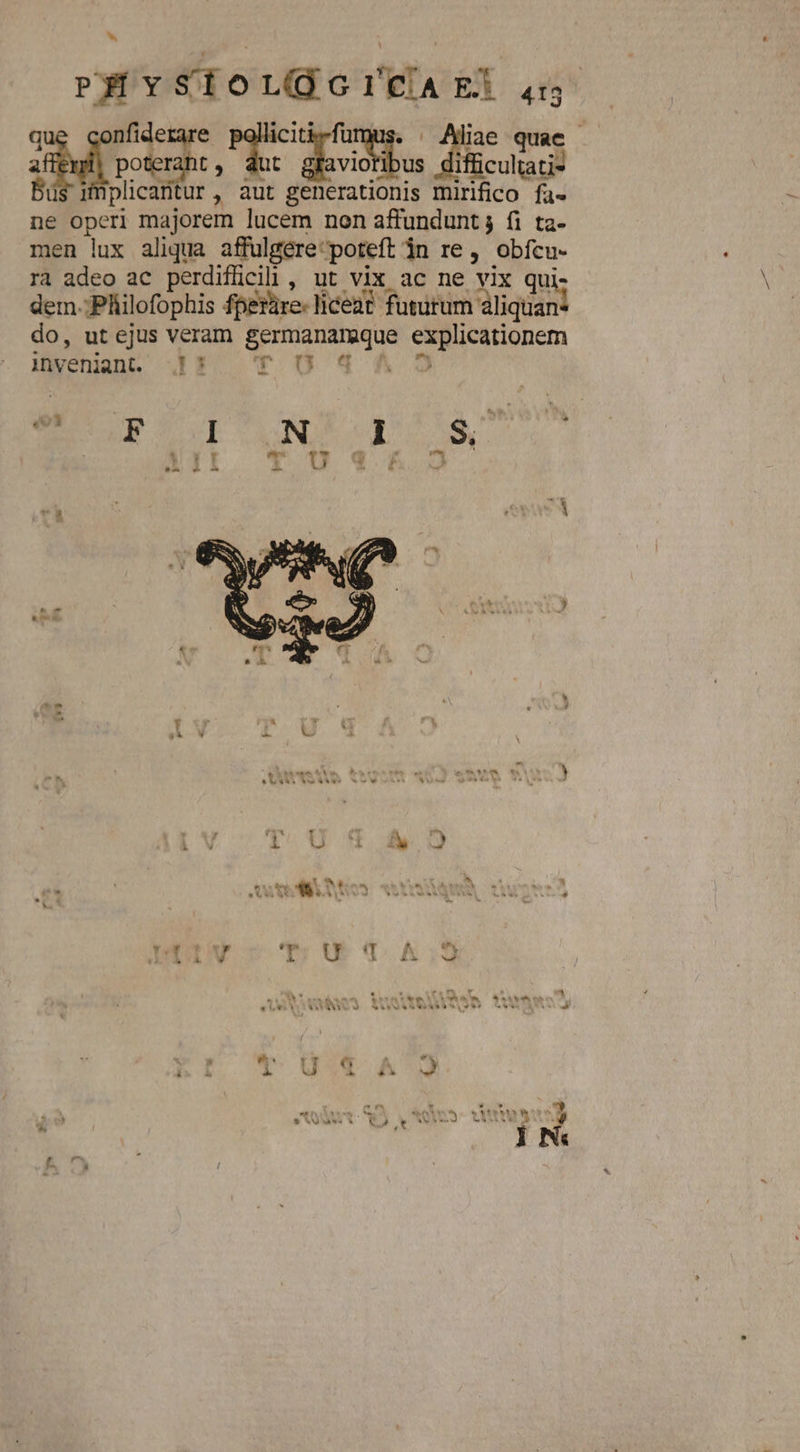 PHYSIOLOGICAE. 413
que confiderare polliciti-fumus. Aliae quae
afferri poterant, aut gravioribus difficultati-
bus implicantur, aut generationis mirifico fa-
ne operi majorem lucem non affundunt; fi ta-
men lux aliqua affulgere poteft in re, obfcu-
ra adeo ac perdifficili, ut vix ac ne vix qui-
dem Philofophis fperare liceat futurum aliquan-
do, ut ejus veram germanamque explicationem
inveniant.
FINIS.
IN-